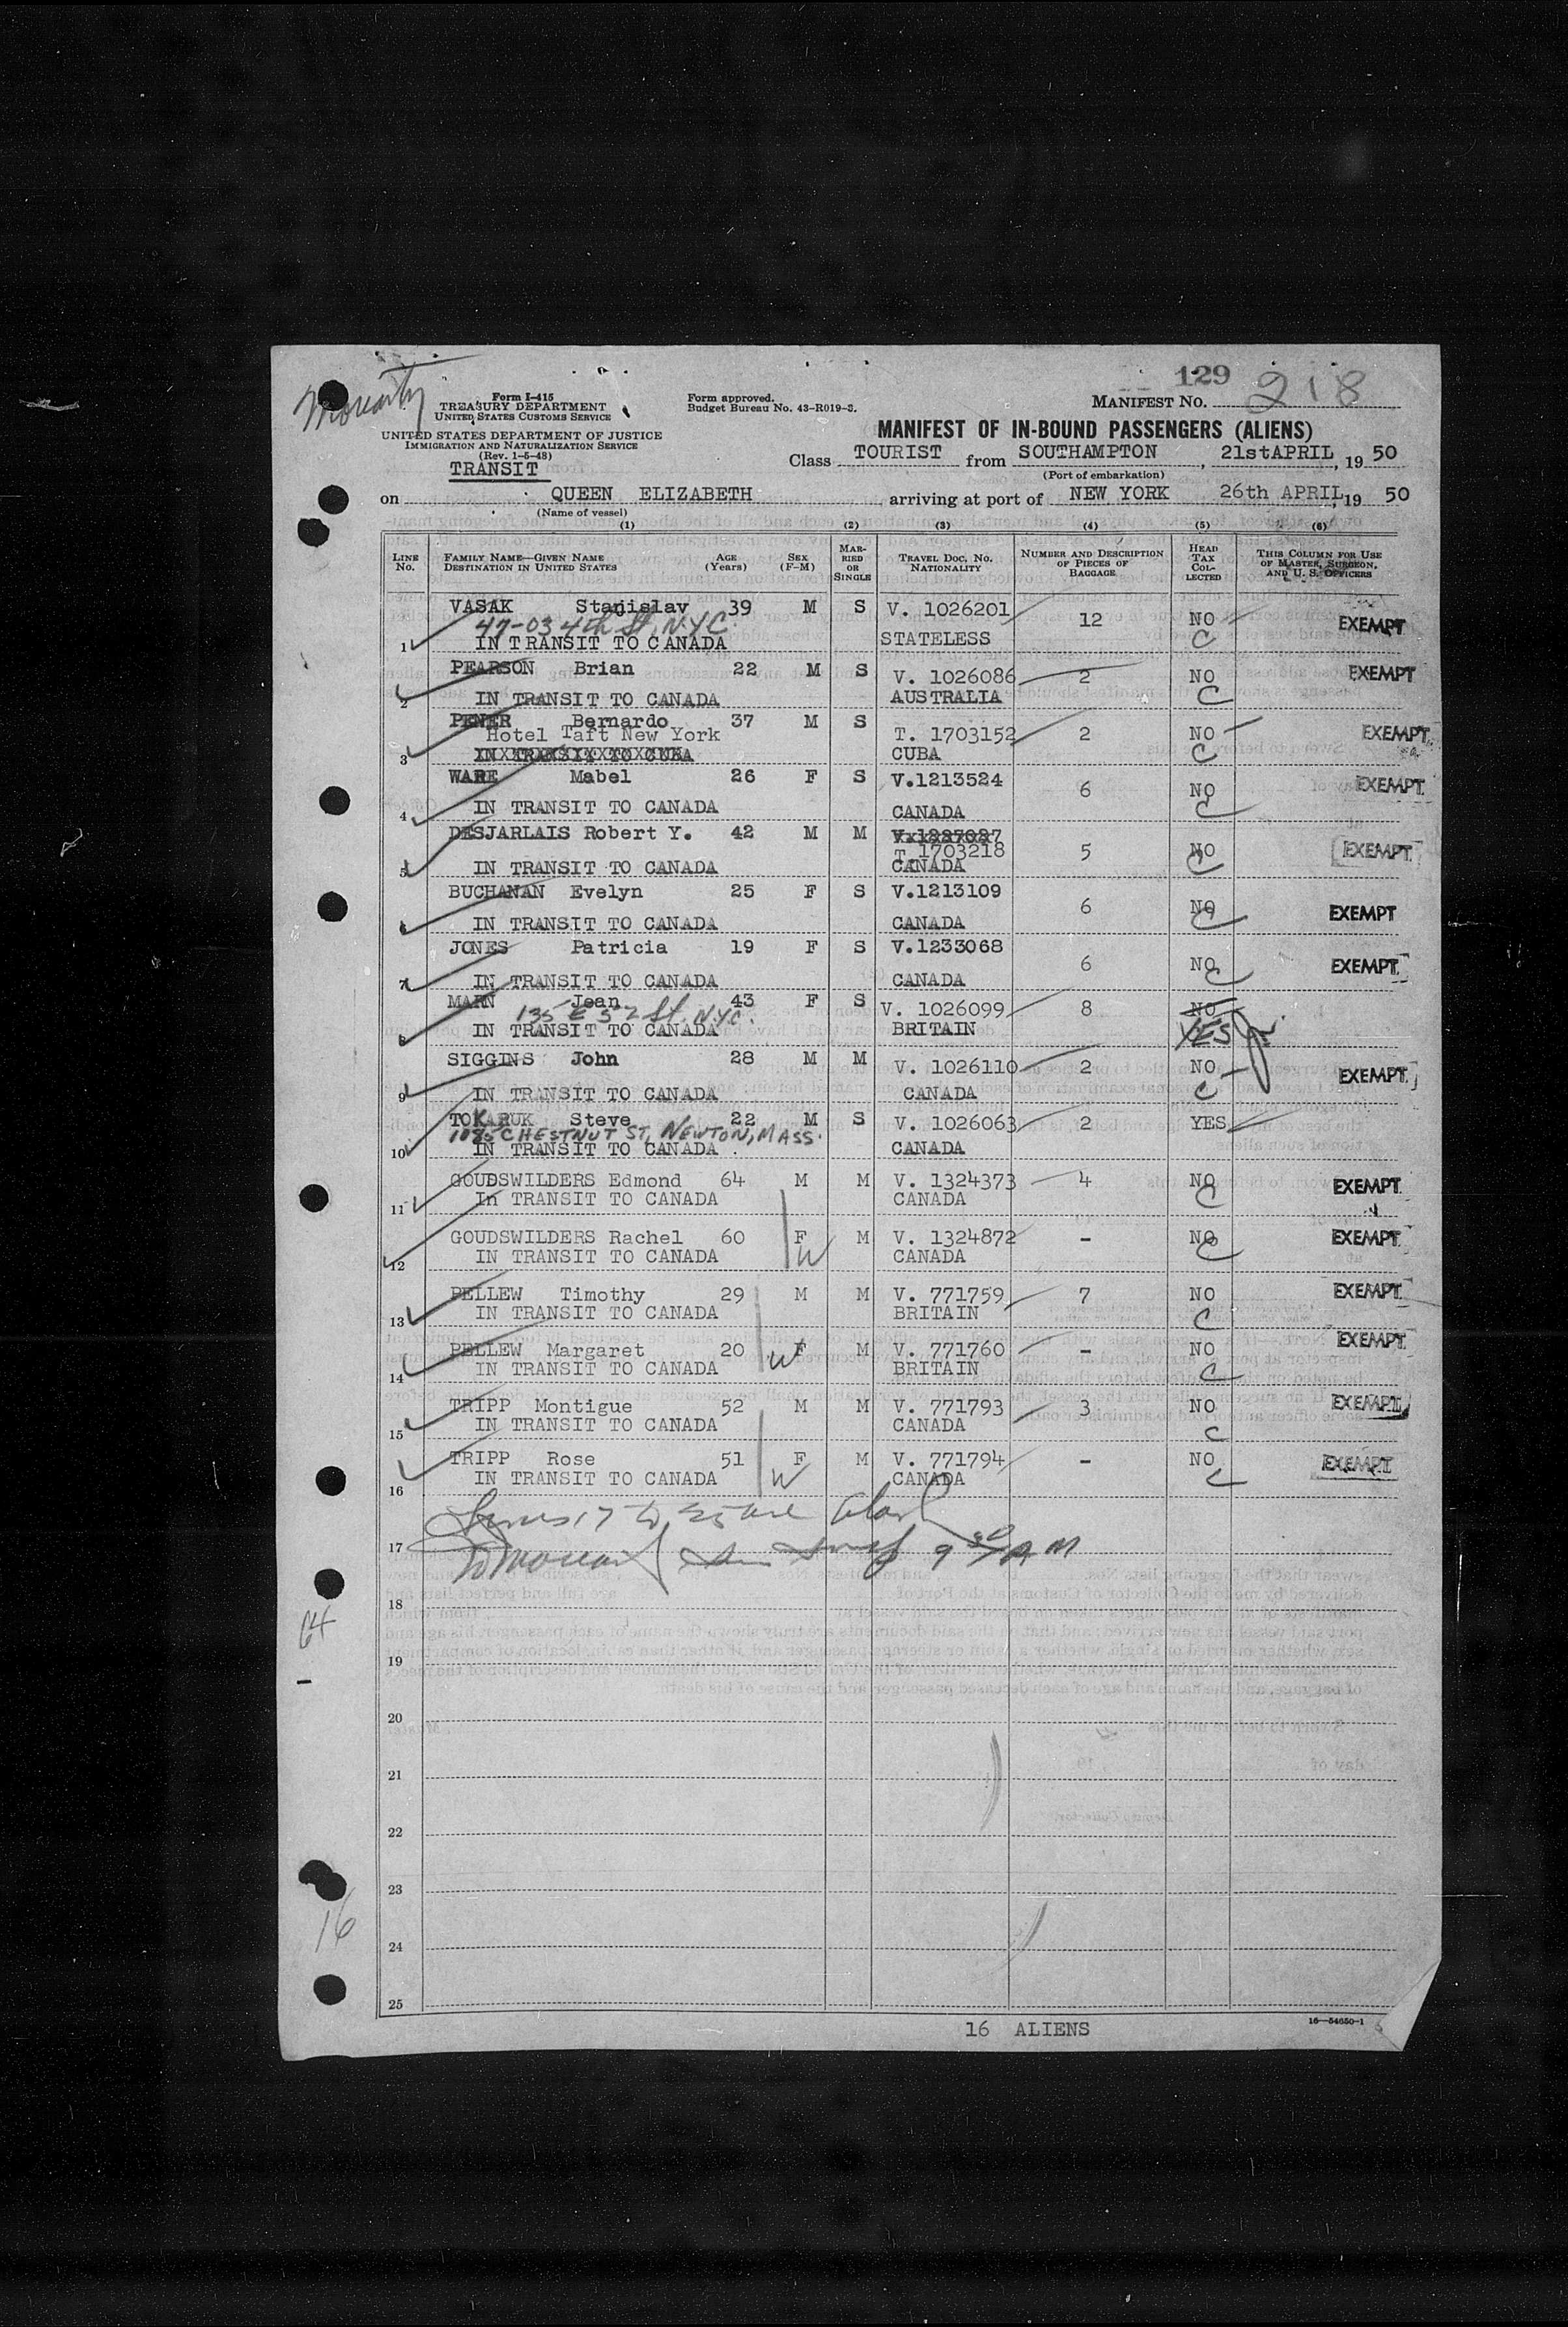 129
Moriarty
Form I-415
TREASURY DEPARTMENT
UNITED STATES CUSTOMS SERVICE
Form approved.
Budget Bureau No. 43-R019-3.
MANIFEST NO. 218
UNITED STATES DEPARTMENT OF JUSTICE
IMMIGRATION AND NATURALIZATION SERVICE
(Rev. 1-5-48)
TRANSIT
MANIFEST OF IN-BOUND PASSENGERS (ALIENS)
Class TOURIST from SOUTHAMPTON, 21stAPRIL, 19 50
(Port of embarkation)
on QUEEN ELIZABETH arriving at port of NEW YORK 26th APRIL, 19 50
(Name of vessel)
(1) (2) (3) (4) (5) (6)
LINE No. FAMILY NAME—GIVEN NAME DESTINATION IN UNITED STATES AGE (Years) SEX (F-M) MARRIED OR SINGLE TRAVEL DOC. NO. NATIONALITY NUMBER AND DESCRIPTION OF PIECES OF BAGGAGE HEAD TAX COLLECTED THIS COLUMN FOR USE OF MASTER, SURGEON, AND U. S. OFFICERS
VASAK Stanislav 39 M S V. 1026201 12 NO EXEMPT
47-03 4th St. N.Y.C.
1 IN TRANSIT TO CANADA STATELESS C
PEARSON Brian 22 M S V. 1026086 2 NO EXEMPT
2 IN TRANSIT TO CANADA AUSTRALIA C
PENER Bernardo 37 M S T. 1703152 2 NO EXEMPT
Hotel Taft New York
3 IN TRANSIT TO CUBA CUBA C
WARE Mabel 26 F S V.1213524 6 NO EXEMPT
4 IN TRANSIT TO CANADA CANADA C
DESJARLAIS Robert Y. 42 M M V.1237027
T. 1703218 5 NO EXEMPT
5 IN TRANSIT TO CANADA CANADA C
BUCHANAN Evelyn 25 F S V.1213109 6 NO EXEMPT
6 IN TRANSIT TO CANADA CANADA C
JONES Patricia 19 F S V.1233068 6 NO EXEMPT
7 IN TRANSIT TO CANADA CANADA C
MARN Jean 43 F S V. 1026099 8 NO
135 E 52 St. N.Y.C.
8 IN TRANSIT TO CANADA BRITAIN YES
SIGGINS John 28 M M V. 1026110 2 NO EXEMPT
9 IN TRANSIT TO CANADA CANADA C
TOKARUK Steve 22 M S V. 1026063 2 YES
1085 CHESTNUT ST, NEWTON, MASS.
10 IN TRANSIT TO CANADA CANADA
GOUDSWILDERS Edmond 64 M M V. 1324373 4 NO EXEMPT
11 In TRANSIT TO CANADA CANADA C
GOUDSWILDERS Rachel 60 F M V. 1324872 - NO EXEMPT
12 IN TRANSIT TO CANADA W CANADA C
PELLEW Timothy 29 M M V. 771759 7 NO EXEMPT
13 IN TRANSIT TO CANADA BRITAIN C
PELLEW Margaret 20 W F M V. 771760 - NO EXEMPT
14 IN TRANSIT TO CANADA BRITAIN C
TRIPP Montigue 52 M M V. 771793 3 NO EXEMPT
15 IN TRANSIT TO CANADA CANADA C
TRIPP Rose 51 F M V. 771794 - NO EXEMPT
16 IN TRANSIT TO CANADA W CANADA C
17 9 30 AM
18
64
19
20
21
22
23
16
24
25
16 ALIENS
16—54650-1